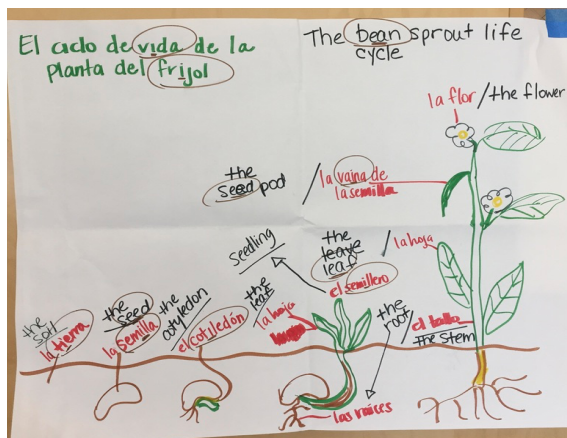 El ciclo de vida de la
planta del frijol
The bean sprout life
cycle
la flor / the flower
the
seed pod
/ la vaina de
la semilla
seedling
the
leave
leaf
/ la hoja
el semillero
the
la tierra
the seed
la semilla
the
cotyledon
el cotyledón
the leaf
la hoja
the
root
/ el tallo
the stem
las raíces